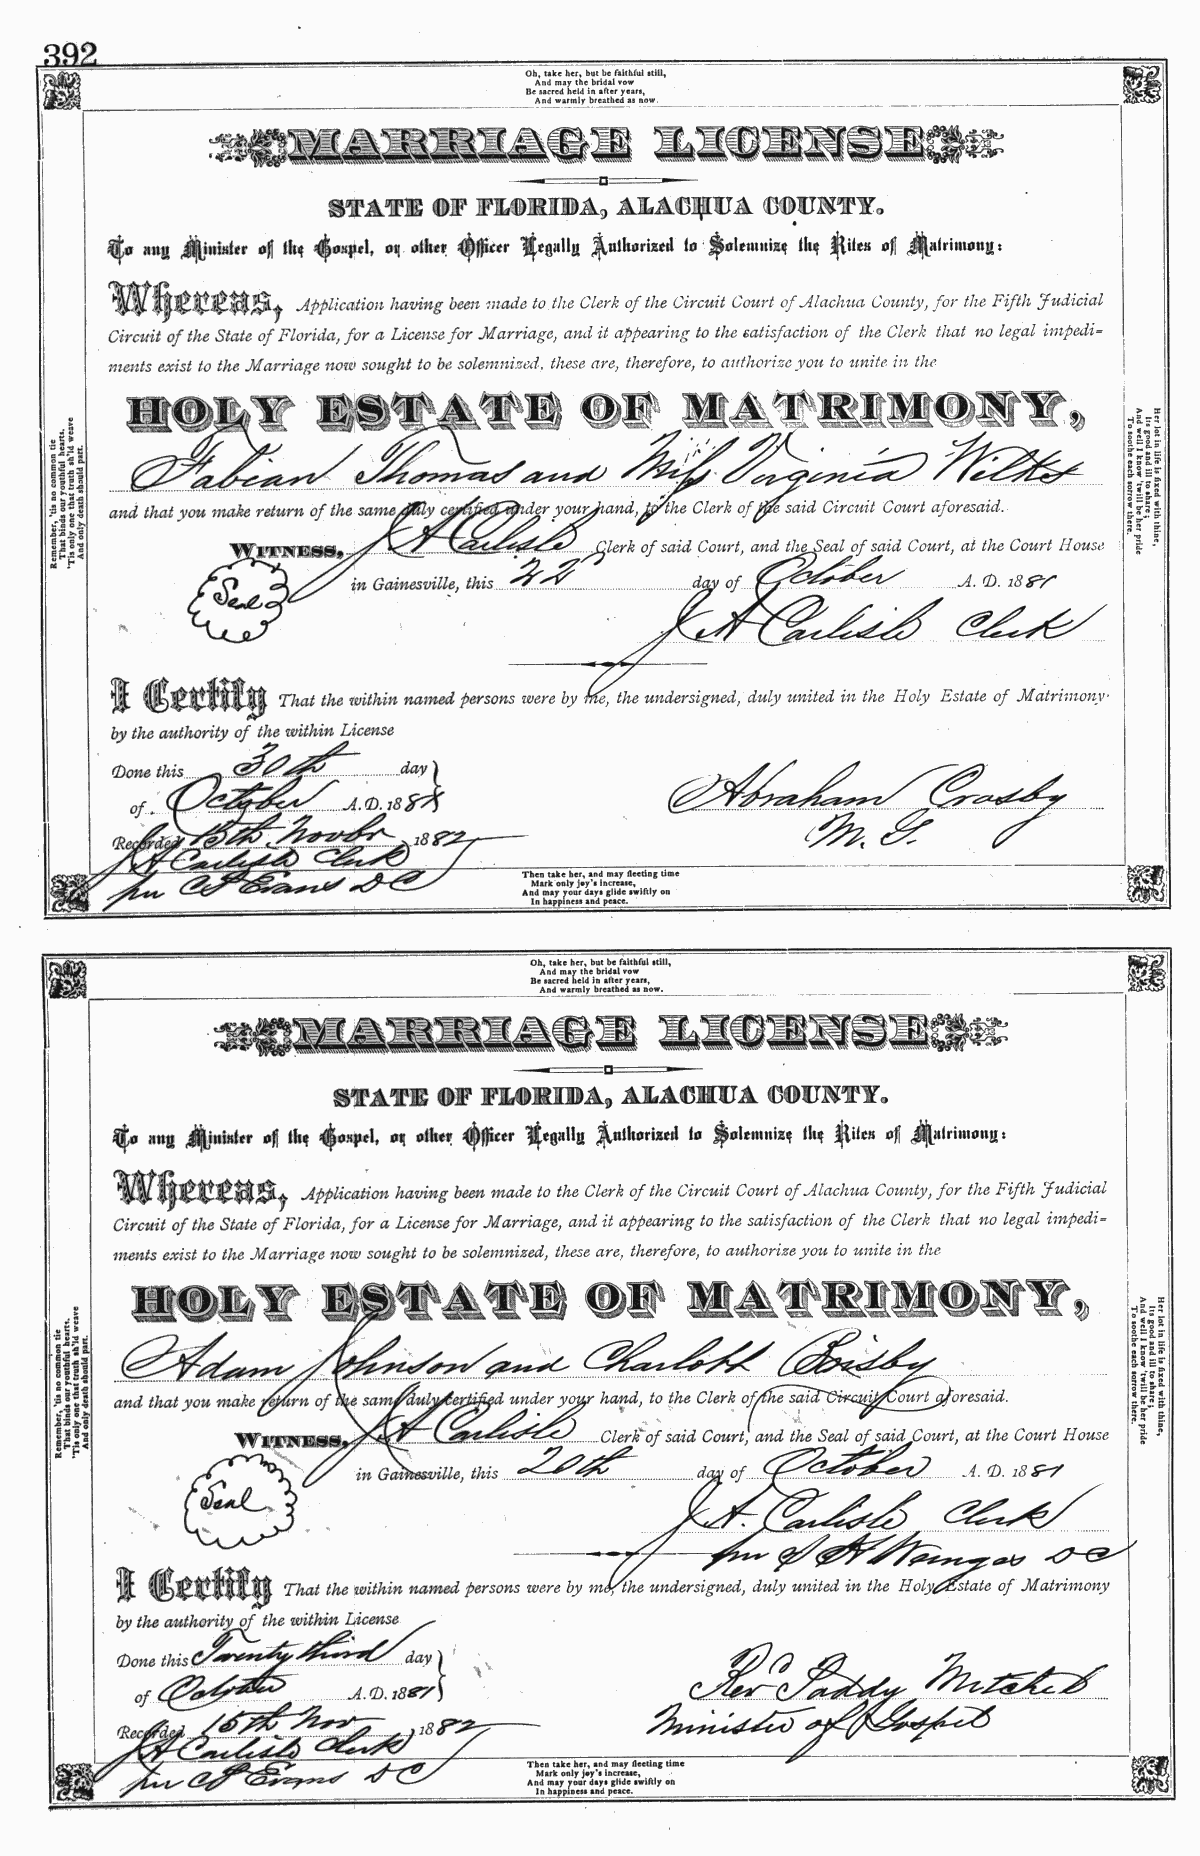 392
Oh, take her, but be faithful still,
And may the bridal vow
Be sacred held in after years,
And warmly breathed as now.
MARRIAGE LICENSE
STATE OF FLORIDA, ALACHUA COUNTY.
To any Minister of the Gospel, or other Officer Legally Authorized to Solemnize the Rites of Matrimony:
Whereas, Application having been made to the Clerk of the Circuit Court of Alachua County, for the Fifth Judicial
Circuit of the State of Florida, for a License for Marriage, and it appearing to the satisfaction of the Clerk that no legal impedi-
ments exist to the Marriage now sought to be solemnized, these are, therefore, to authorize you to unite in the
HOLY ESTATE OF MATRIMONY,
Fabian Thomas and Miss Virginia Wilks
and that you make return of the same duly certified under your hand, to the Clerk of the said Circuit Court aforesaid.
WITNESS, J A Carlisle Clerk of said Court, and the Seal of said Court, at the Court House
in Gainesville, this 22 day of October A. D. 1881
Seal
J A Carlisle Clerk
I Certify That the within named persons were by me, the undersigned, duly united in the Holy Estate of Matrimony
by the authority of the within License
Done this 30th day
of October A. D. 1881
Abraham Crosby
M. G.
Recorded 15th Novbr 1882
J A Carlisle Clerk
per C S Evans D C
Remember, 'tis no common tie
That binds our youthful hearts,
'Tis only one that truth sh'ld weave
And only death should part.
Her lot in life is fixed with thine,
Its good and ill to share;
And well I know 'twill be her pride
To soothe each sorrow there.
Then take her, and may fleeting time
Mark only joy's increase,
And may your days glide swiftly on
In happiness and peace.
Oh, take her, but be faithful still,
And may the bridal vow
Be sacred held in after years,
And warmly breathed as now.
MARRIAGE LICENSE
STATE OF FLORIDA, ALACHUA COUNTY.
To any Minister of the Gospel, or other Officer Legally Authorized to Solemnize the Rites of Matrimony:
Whereas, Application having been made to the Clerk of the Circuit Court of Alachua County, for the Fifth Judicial
Circuit of the State of Florida, for a License for Marriage, and it appearing to the satisfaction of the Clerk that no legal impedi-
ments exist to the Marriage now sought to be solemnized, these are, therefore, to authorize you to unite in the
HOLY ESTATE OF MATRIMONY,
Adam Johnson and Charlott Boisby
and that you make return of the same duly certified under your hand, to the Clerk of the said Circuit Court aforesaid.
WITNESS, J. A Carlisle Clerk of said Court, and the Seal of said Court, at the Court House
in Gainesville, this 20th day of October A. D. 1881
Seal
J. A. Carlisle Clerk
per D C
I Certify That the within named persons were by me, the undersigned, duly united in the Holy Estate of Matrimony
by the authority of the within License
Done this Twenty third day
of October A. D. 1881
Rev Paddy Mitchel
Minister of Gospel
Recorded 15th Nov 1882
J A Carlisle Clerk
per C S Evans D C
Remember, 'tis no common tie
That binds our youthful hearts,
'Tis only one that truth sh'ld weave
And only death should part.
Her lot in life is fixed with thine,
Its good and ill to share;
And well I know 'twill be her pride
To soothe each sorrow there.
Then take her, and may fleeting time
Mark only joy's increase,
And may your days glide swiftly on
In happiness and peace.